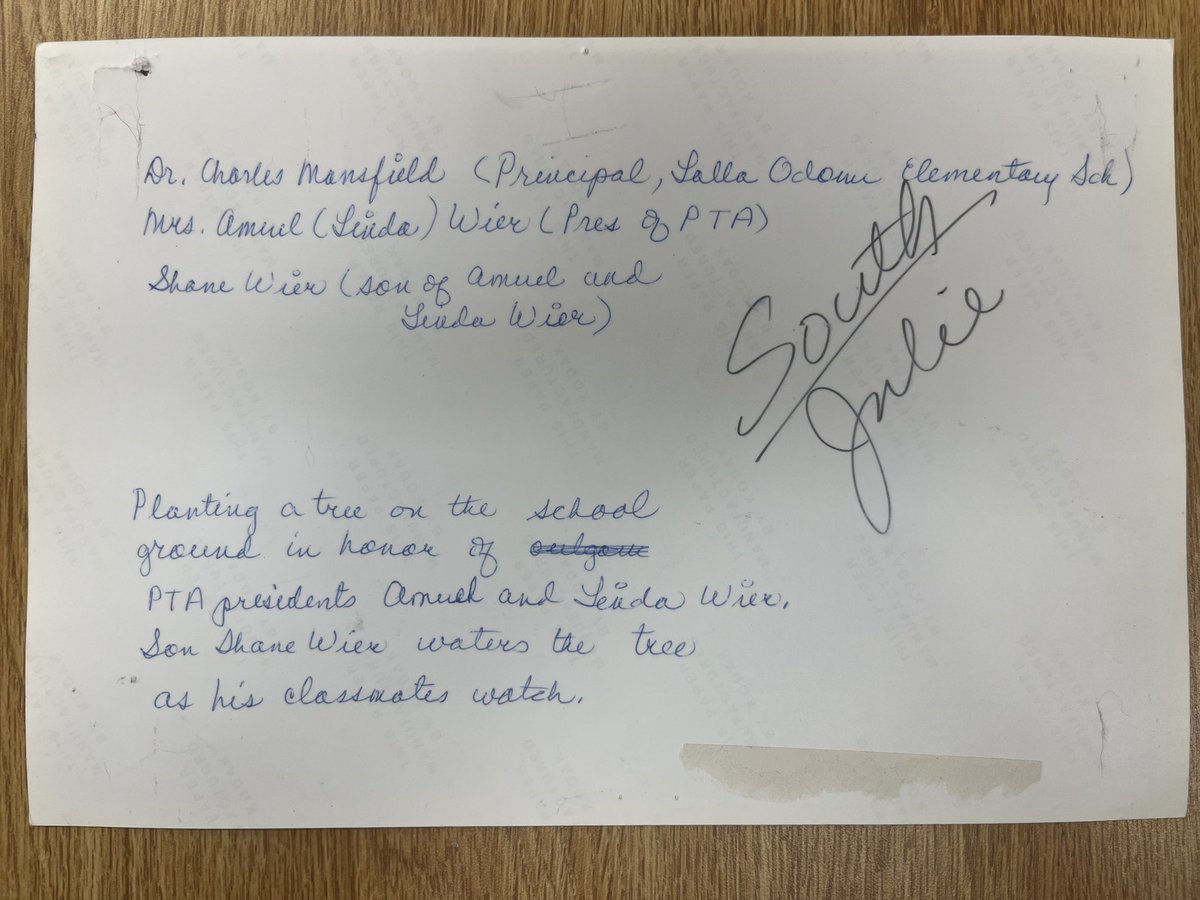 Dr. Charles Mansfield (Principal, Lalla Odom Elementary Sch)
Mrs. Amuel (Linda) Wier (Pres of PTA)
Shane Wier (son of Amuel and
Linda Wier)
South
Julie
Planting a tree on the school
ground in honor of
PTA presidents Amuel and Linda Wier.
Son Shane Wier waters the tree
as his classmates watch.